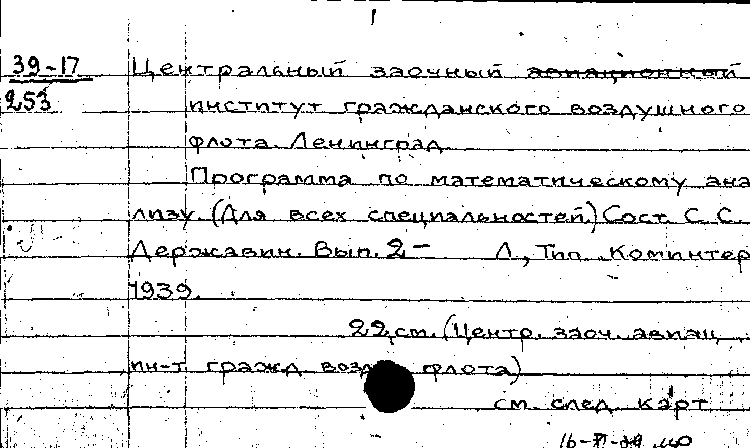 1
39-17 Центральный заочный авиационный
253 институт гражданского воздушного
флота. Ленинград
Программа по математическому ана
лизу. (Для всех специальностей.) Сост. С. С.
Державин. Вып. 2- Л., Тип. Коминтер
1939.
22 см. (Центр. заоч. авиац
ин-т гражд флота)
см. след. карт